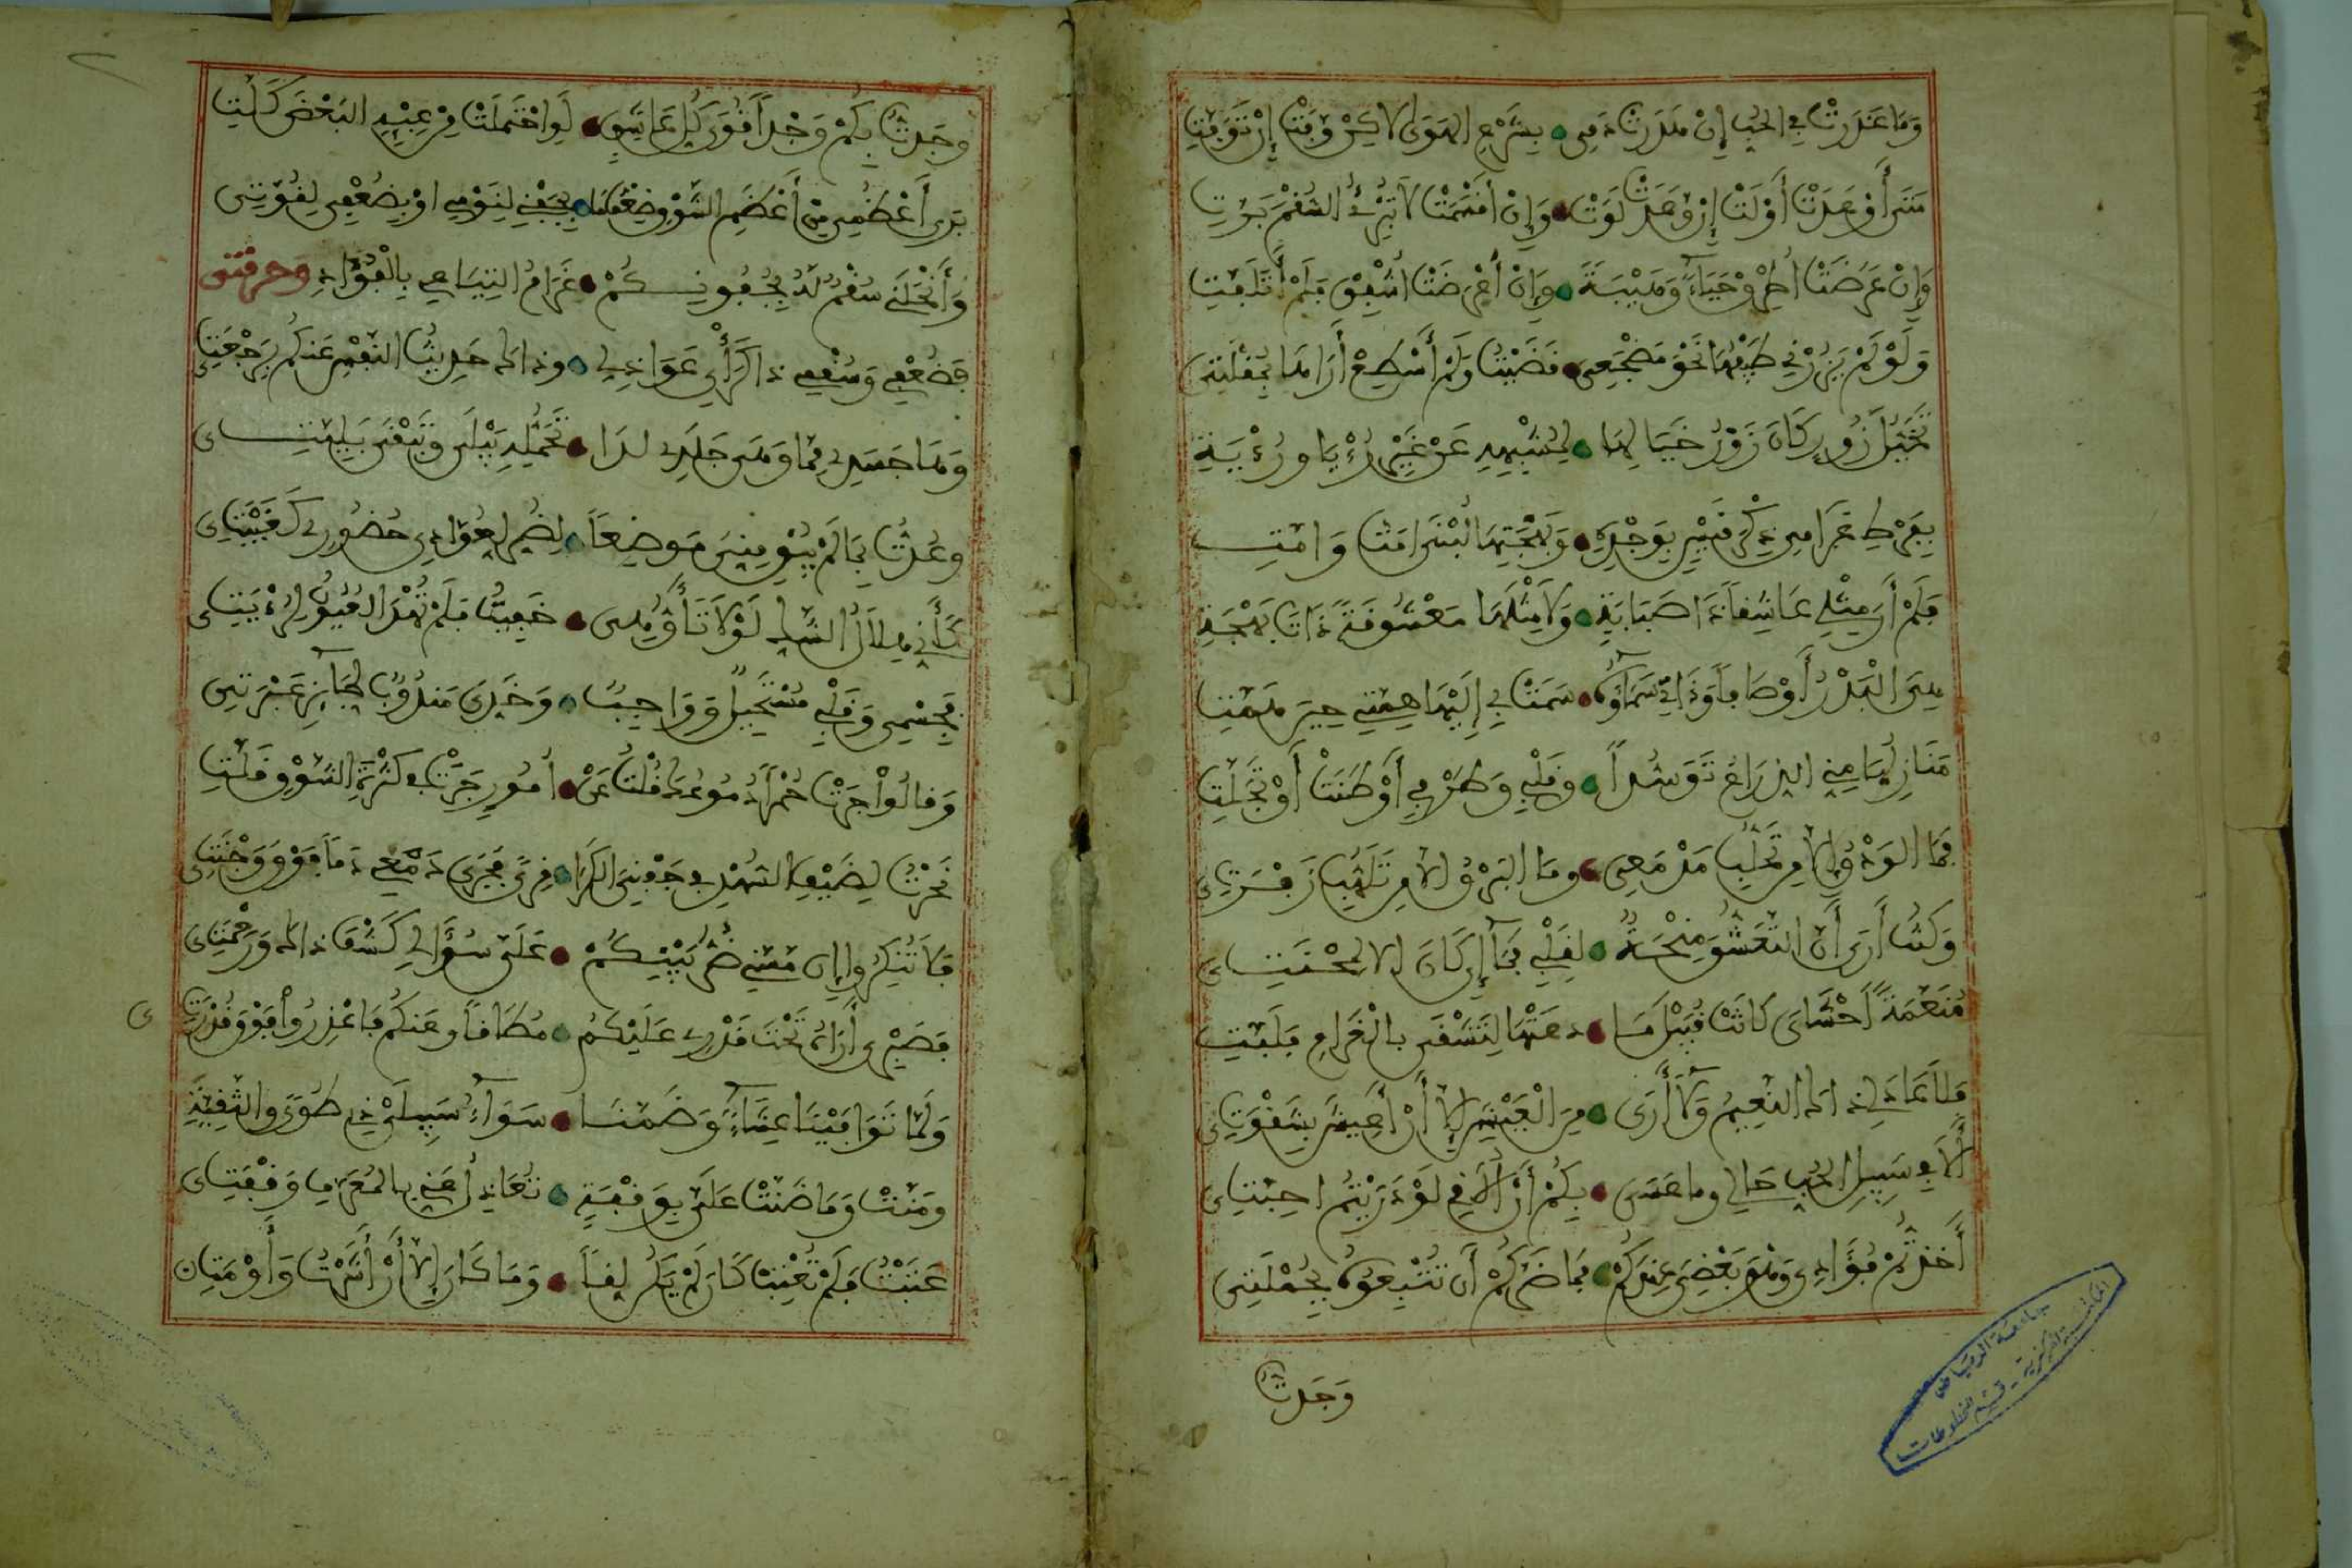 وَمَا غَدَرَتْ فِي الحُبِّ إِنْ هَدَرَتْ دَمِي • بِشَرْعِ الهَوَى لَاكِنْ وَفَتْ إِذْ تَوَفَّتِ
مَتَى أَوْعَدَتْ أَوْلَتْ وَإِنْ وَعَدَتْ لَوَتْ • وَإِنْ أَقْسَمَتْ لَا تُبْرِئُ السُّقْمَ بَرَّتِ
وَإِنْ عَرَضَتْ أُطْرِقْ حَيَاءً وَهَيْبَةً • وَإِنْ أَعْرَضَتْ أُشْفِقْ فَلَمْ أَتَلَفَّتِ
وَلَوْ لَمْ يَزُرْنِي طَيْفُهَا نَحْوَ مَضْجَعِي • قَضَيْتُ وَلَمْ أَسْطِعْ أَرَاهَا بِمُقْلَتِي
تَخَيُّلُ زُورٍ كَانَ زَوْرُ خَيَالِهَا • لِمُشْبِهِهِ عَنْ غَيْرِ رُؤْيَا وَرُؤْيَةِ
بِفَرْطِ غَرَامِي ذِكْرَ قَيْسٍ بِوَجْدِهِ • وَبَهْجَتِهَا لُبْنَى أَمَتُّ وَأَمَّتِ
فَلَمْ أَرَ مِثْلِي عَاشِقًا ذَا صَبَابَةٍ • وَلَا مِثْلَهَا مَعْشُوقَةً ذَاتَ بَهْجَةِ
هِيَ البَدْرُ أَوْصَافًا وَذَاتِي سَمَاؤُهَا • سَمَتْ بِي إِلَيْهَا هِمَّتِي حِينَ هَمَّتِ
مَنَازِلُهَا مِنِّي الذِّرَاعُ تَوَسُّدًا • وَقَلْبِي وَطَرْفِي أَوْطَنَتْ أَوْ تَجَلَّتِ
فَمَا الوَدْقُ إِلَّا مِنْ تَحَلُّبِ مَدْمَعِي • وَمَا البَرْقُ إِلَّا مِنْ تَلَهُّبِ زَفْرَتِي
وَكُنْتُ أَرَى أَنَّ التَّعَشُّقَ مِنْحَةٌ • لِقَلْبِي فَمَا إِنْ كَانَ إِلَّا لِمِحْنَتِي
مُنَعَّمَةً أَحْشَايَ كَانَتْ قُبَيْلَ مَا • دَعَتْهَا لِتَشْقَى بِالْغَرَامِ فَلَبَّتِ
فَلَا عَادَ لِي ذَاكَ النَّعِيمُ وَلَا أَرَى • مِنَ الْعَيْشِ إِلَّا أَنْ أَعِيشَ بِشِقْوَتِي
أَلَا فِي سَبِيلِ الحُبِّ حَالِي وَمَا عَسَى • بِكُمْ أَنْ أُلَاقِي لَوْ دَرَيْتُمْ أَحِبَّتِي
أَخَذْتُمْ فُؤَادِي وَهْوَ بَعْضِي عِنْدَكُمْ • فَمَا ضَرَّكُمْ أَنْ تُتْبِعُوهُ بِجُمْلَتِي
وَجَدتُ
جامعة الرياض
المكتبة المركزية - قسم المخطوطات
وَجَدتُ بِكُمْ وَجْدًا قُوَى كُلِّ عَاشِقٍ • لَوِ احْتَمَلَتْ مِنْ عِبْئِهِ البَعْضَ كَلَّتِ
بَرَى أَعْظُمِي مِنْ أَعْظَمِ الشَّوْقِ ضِعْفُ مَا • بِجَفْنِي لِنَوْمِي أَوْ بِضُعْفِي لِقُوَّتِي
وَأَنْحَلَنِي سُقْمٌ لَهُ بِجُفُونِكُمْ • غَرَامُ التِيَاعِي بِالْفُؤَادِ وَحُرْقَتِي
فَضُعْفِي وَسُقْمِي ذَا كَرَأْيِ عَوَاذِلِي • وَذَاكَ حَدِيثُ النَّفْسِ عَنكُمْ بِرَجْعَتِي
وَهَا جَسَدِي مِمَّا وَهَى جَلَدِي لِذَا • تَحَمُّلُهُ يَبْلَى وَتَبْقَى بَلِيَّتِي
وَعُدْتُ بِمَا لَمْ يُبْقِ مِنِّي مَوْضِعًا • لِضُرٍّ لِعُوَّادِي حُضُورِي كَغَيْبَتِي
كَأَنِّي هِلَالُ الشَّكِّ لَوْلَا تَأَوُّهِي • خَفِيتُ فَلَمْ تُهْدَ العُيُونُ لِرُؤْيَتِي
فَجِسْمِي وَقَلْبِي مُسْتَحِيلٌ وَوَاجِبٌ • وَخَدِّيَ مَندُوبٌ لِجَائِزِ عَبْرَتِي
وَقَالُوا جَرَتْ حُمْرًا دُمُوعُكَ قُلْتُ عَنْ • أُمُورٍ جَرَتْ فِي كَثْرَةِ الشَّوْقِ قَلَّتِ
نَحَرْتُ لِضَيْفِ السُّهْدِ فِي جَفْنِيَ الكَرَا • قِرًى فَجَرَى دَمْعِي دَمًا فَوْقَ وَجْنَتِي
فَلَا تُنكِرُوا إِن مَسَّنِي ضُرُّ بَيْنِكُمْ • عَلَيَّ سُؤَالِي كَشْفَ ذَاكَ وَرَحْمَتِي
فَصَبْرِي أَرَاهُ تَحْتَ قَدْرِي عَلَيْكُمُ • مُطَاقًا وَعَنكُمْ فَاعْذِرُوا فَوْقَ قُدْرَتِي
وَلَمَّا تَوَافَيْنَا عِشَاءً وَضَمَّنَا • سَوَاءُ سَبِيلَيْ ذِي طُوًى وَالثَّنِيَّةِ
وَمَنَّتْ وَمَا ضَنَّتْ عَلَيَّ بِوَقْفَةٍ • تُعَادِلُ عِندِي بِالمُعَرَّفِ وَقْفَتِي
عَتَبْتُ فَلَمْ تُعْتِبْ كَأَن لَمْ يَكُنْ لِقًا • وَمَا كَانَ إِلَّا أَنْ أَشَرْتُ وَأَوْمَتِ